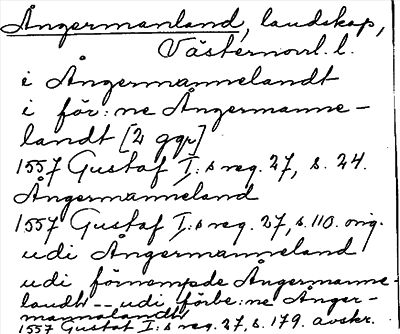 Ångermanland, landskap,
Västernorrl. l.
i Ångermannelandt
i för:ne Ångermanne-
landt [2 ggr]
1557 Gustaf I:s reg. 27, s. 24.
Ångermanneland
1557 Gustaf I:s reg. 27, s. 110. orig.
udi Ångermanneland
udi förnempde Ångermanne-
landt -- udi förbe:ne Ånger-
mannalandt
1557 Gustaf I:s reg. 27, s. 179. avskr.